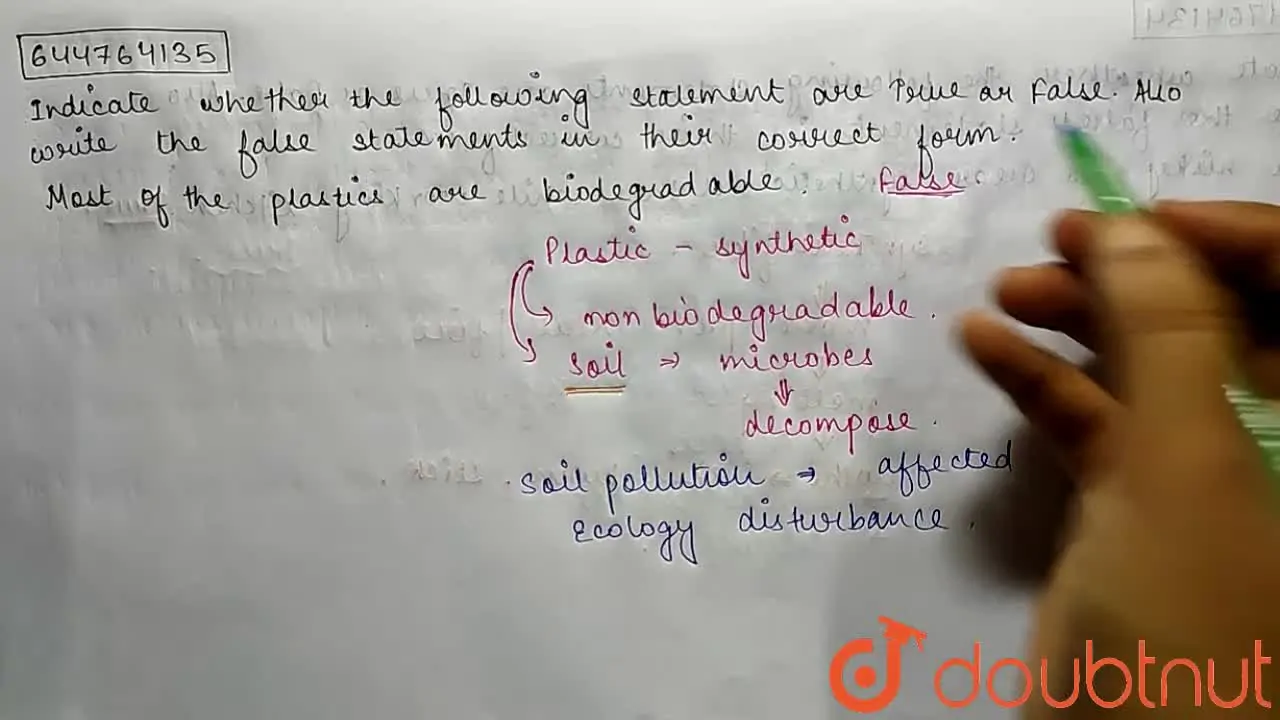 644764135
Indicate whether the following statement are True or False. Also
write the false statements in their correct form.
Most of the plastics are biodegradable. False.
Plastic - synthetic
non biodegradable.
soil ⇒ microbes
⇓
decompose.
soil pollution ⇒ affected
Ecology disturbance.
doubtnut